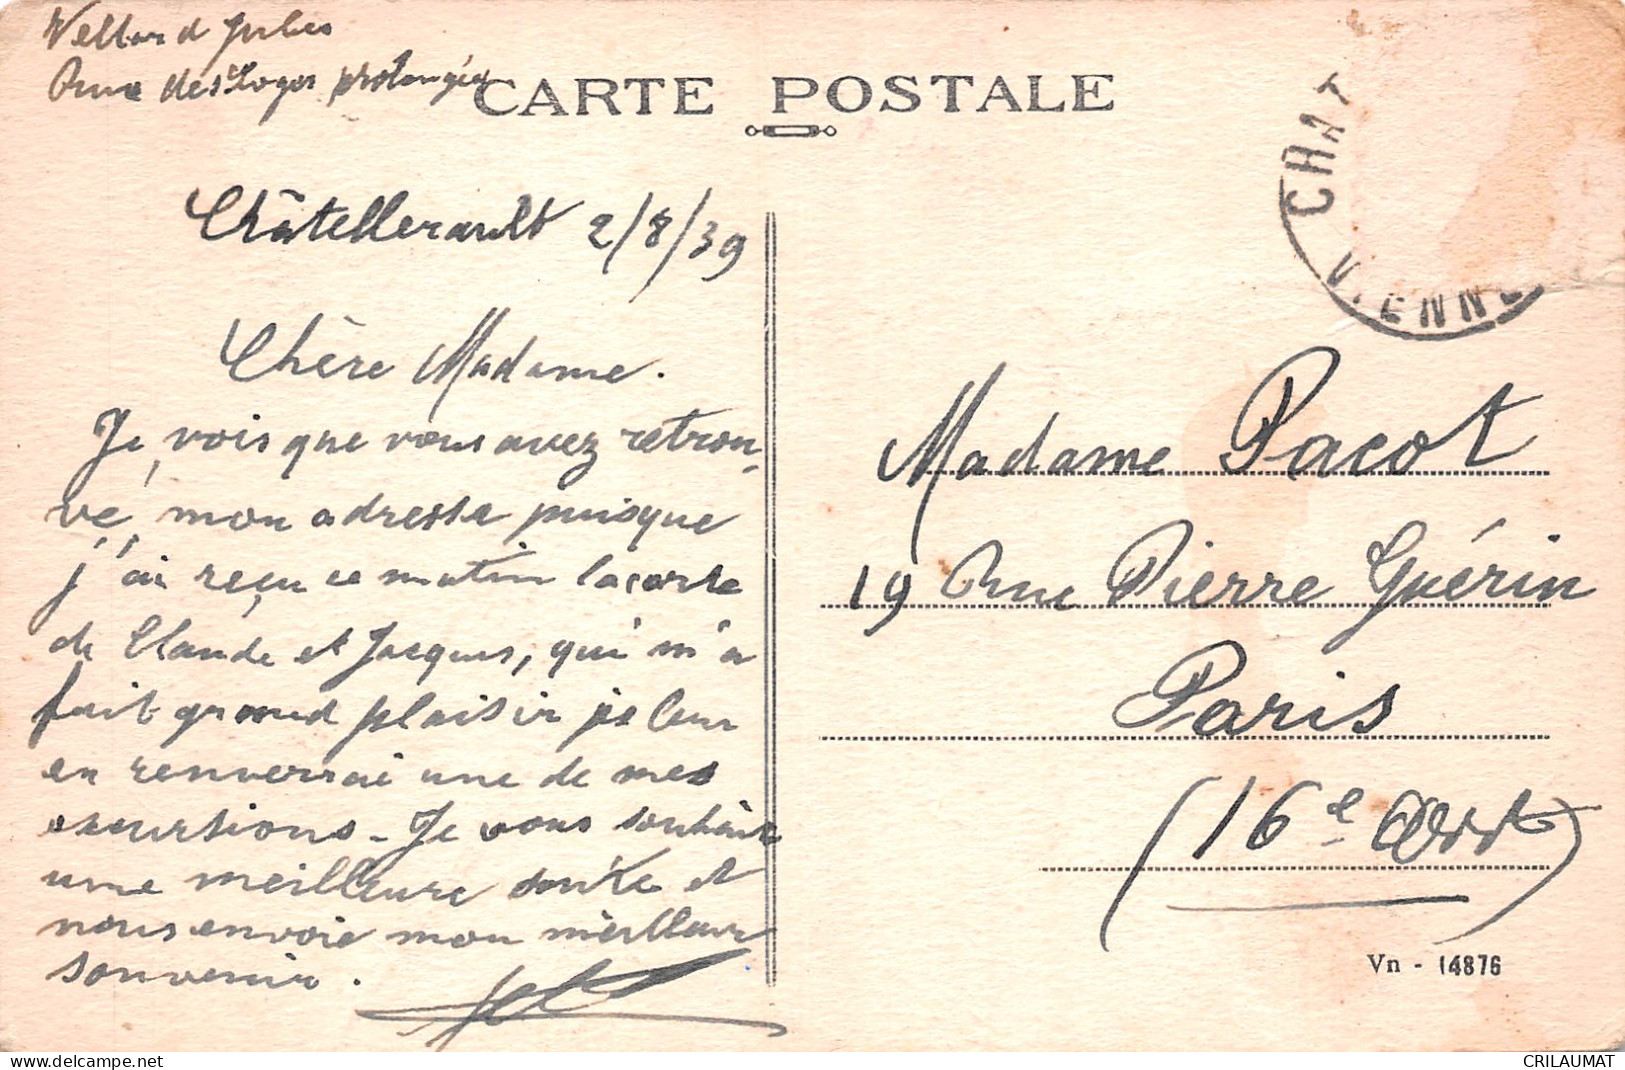 Vellard Jules
Rue des Loges prolongée
CARTE POSTALE
CHAT
VIENNE
Châtellerault 2/8/39
Chère Madame.
Je vois que vous avez retrou-
vé mon adresse puisque
j'ai reçu ce matin la carte
de Claude et Jacques, qui m'a
fait grand plaisir je leur
en renverrai une de mes
excursions - Je vous souhaite
une meilleure santée et
vous envoie mon meilleur
souvenir.
Madame Pacot
19 Rue Pierre Guérin
Paris
(16e Arrt)
Vn - 14876
www.delcampe.net
CRILAUMAT